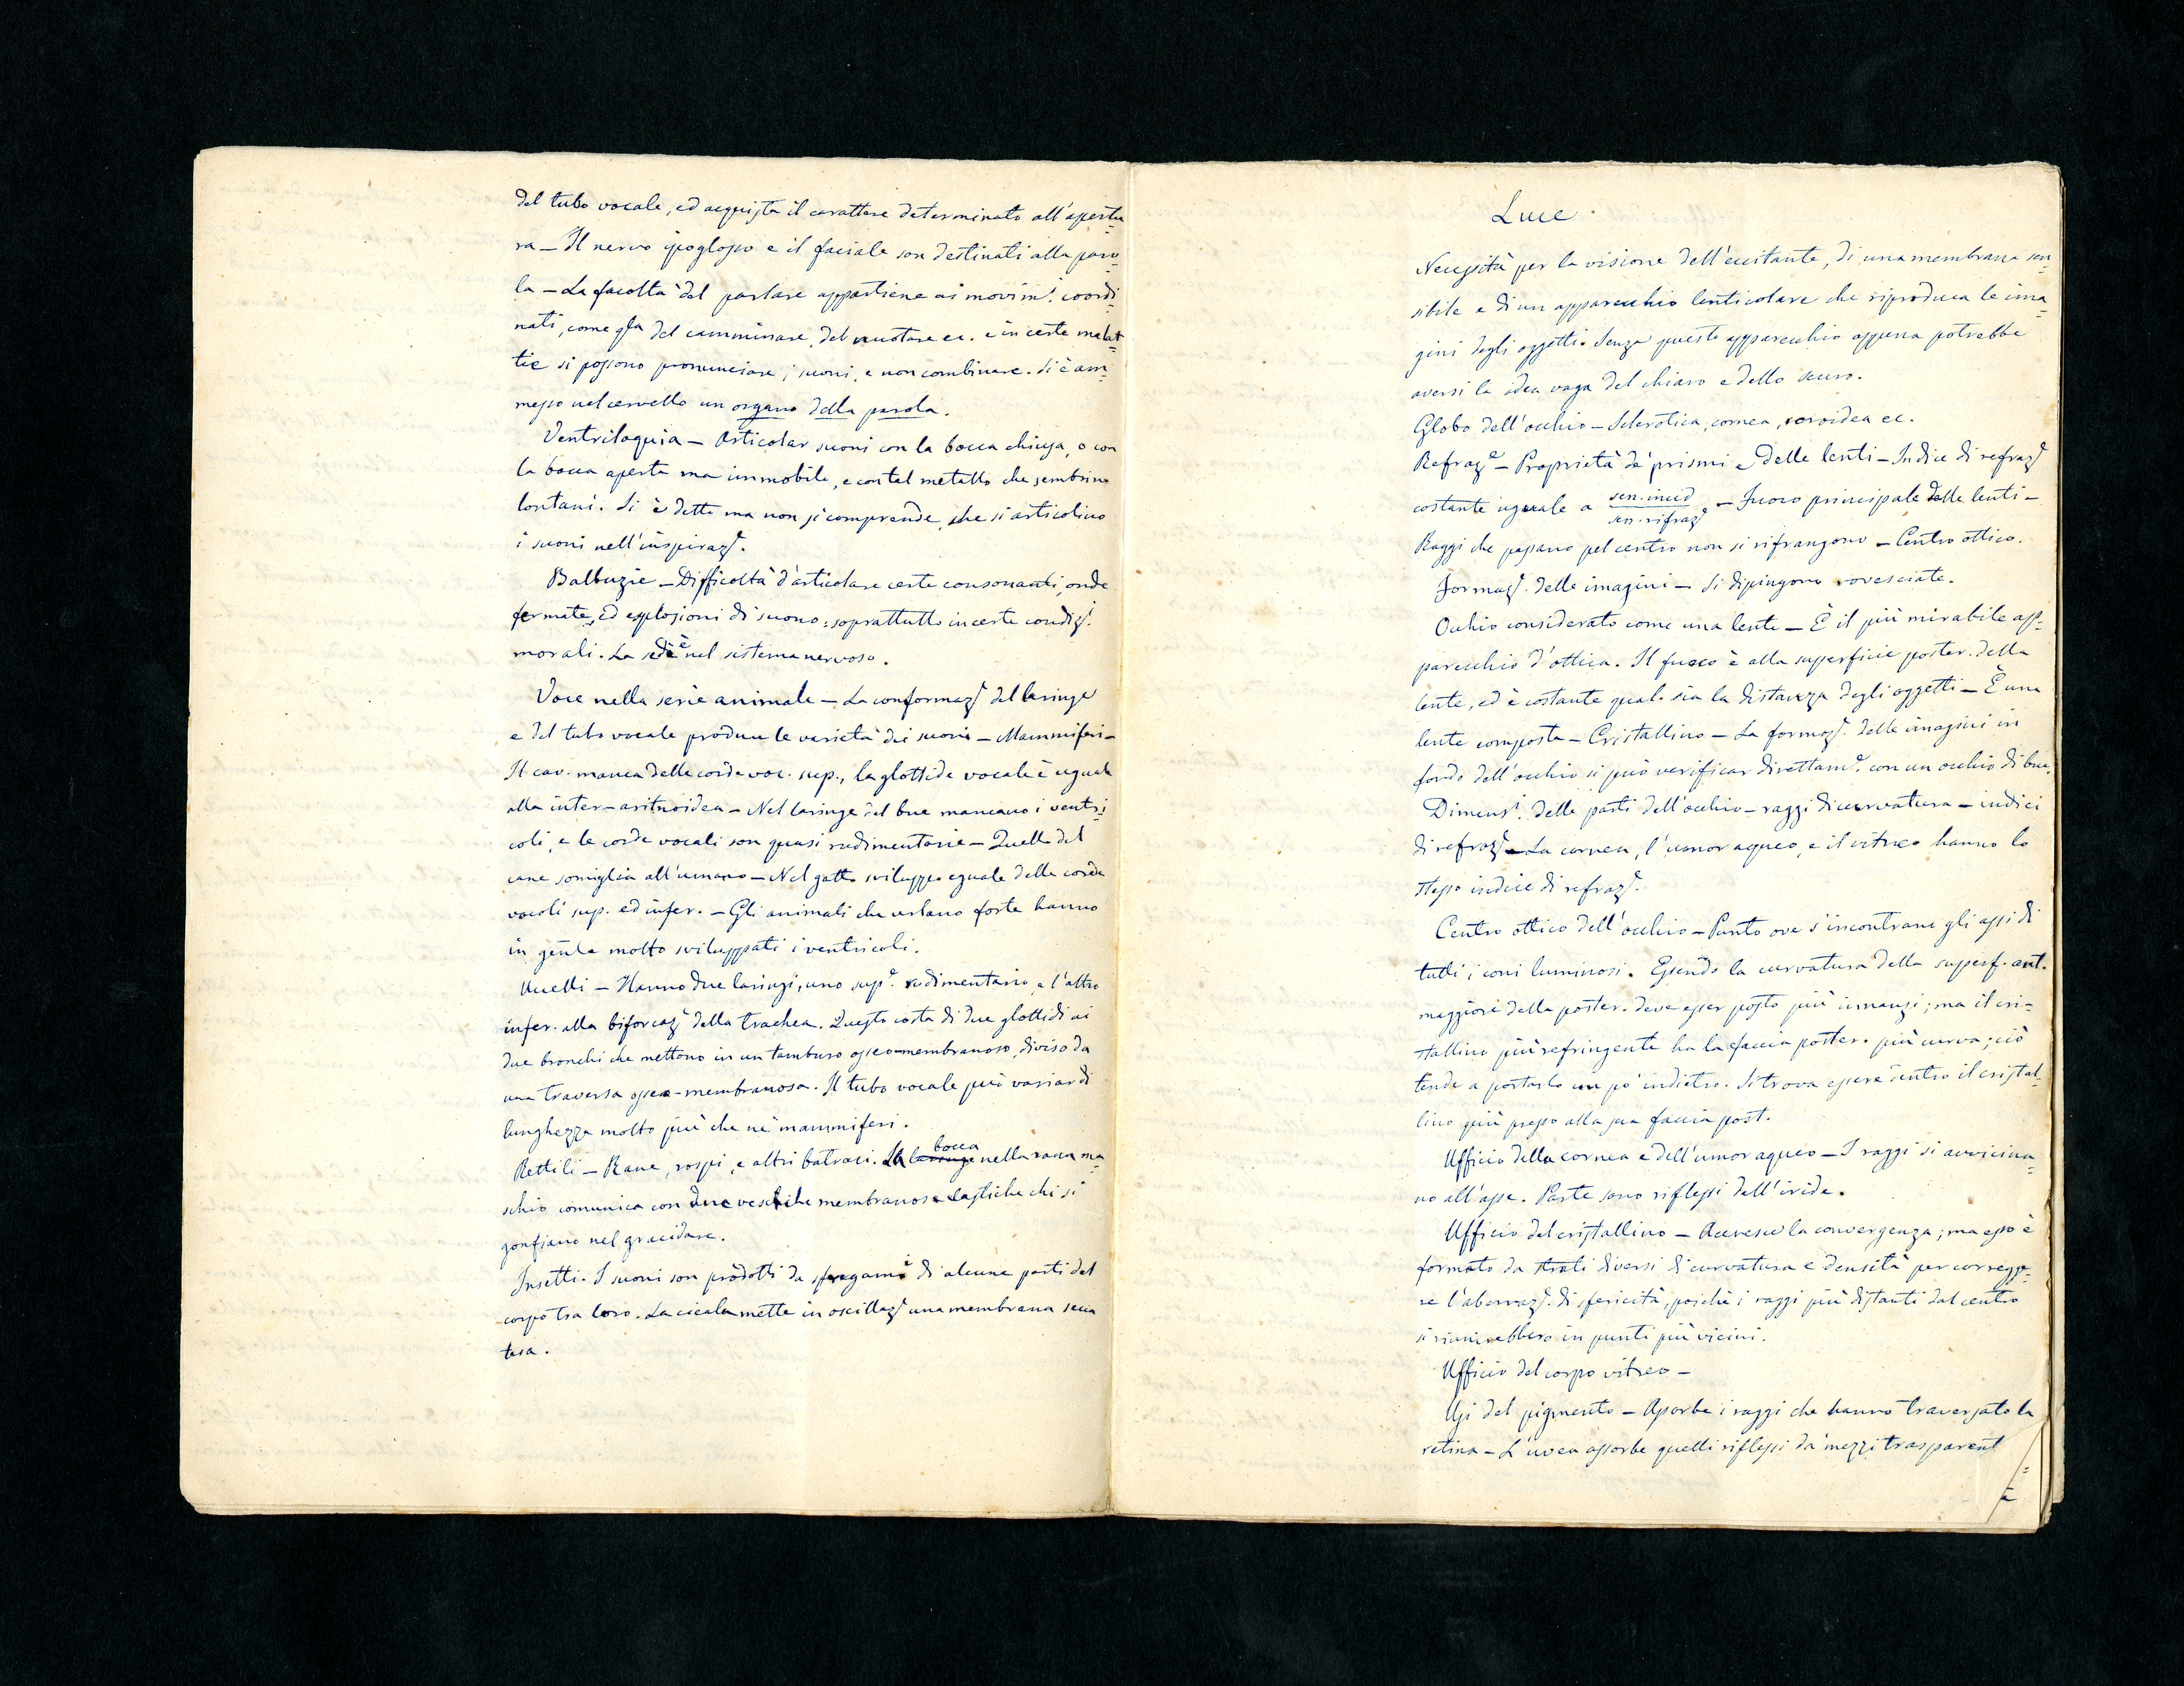 del tubo vocale, ed acquista il carattere determinato all'apertu=
ra — Il nervo ipoglosso e il faciale son destinati alla paro=
la — La facoltà del parlare appartiene ai movim.ti coordi=
nati, come qlla del camminare, del nuotare ec. e in certe malat=
tie si possono pronunciare i suoni, e non combinare. Si è am=
messo nel cervello un organo della parola.
Ventriloquia — Articolar suoni con la bocca chiusa, o con
la bocca aperta ma immobile, e con tal metallo che sembrino
lontani. Si è detto ma non si comprende, che si articolino
i suoni nell'inspiraz.e.
Balbuzie — Difficoltà d'articolare certe consonanti, onde
fermate, ed esplosioni di suono, soprattutto in certe condiz.i
morali. La sede è nel sistema nervoso.
Voce nella serie animale — La conformaz.e del laringe
e del tubo vocale produce le varietà dei suoni — Mammiferi —
Il cav. manca delle corde voc. sup., la glottide vocale è uguale
alla inter-aritnoidea — Nel laringe del bue mancano i ventri=
coli, e le corde vocali son quasi rudimentarie — Quello del
cane somiglia all'umano — Nel gatto sviluppo eguale delle corde
vocali sup. ed infer. — Gli animali che urlano forte hanno
in genle molto sviluppati i ventricoli.
Uccelli — Hanno due laringi, uno sup.e rudimentario, e l'altro
infer. alla biforcaz.e della trachea. Questo costa di due glottidi ai
due bronchi che mettono in un tamburo osseo-membranoso, diviso da
una traversa osseo-membranosa. Il tubo vocale può variar di
lunghezza molto più che ne' mammiferi.
Rettili — Rane, rospi, e altri batraci. La laringe bocca nella rana ma=
schio comunica con due vesciche membranose elastiche che si
gonfiano nel gracidare.
Insetti. I suoni son prodotti da sfregam.i di alcune parti del
corpo tra loro. La cicala mette in oscillaz.e una membrana secca
tesa.
Luce
Necessità per la visione dell'eccitante, di una membrana sen=
sibile e di un apparecchio lenticolare che riproduca le ima=
gini degli oggetti. Senza questo apparecchio appena potrebbe
aversi la idea vaga del chiaro e dello scuro.
Globo dell'occhio — Sclerotica, cornea, coroidea ec.
Refraz.e — Proprietà de' prismi e delle lenti — Indice di refraz.e
costante uguale a sen. incid / sen. rifraz.e — Fuoco principale delle lenti —
Raggi che passano pel centro non si rifrangono — Centro ottico.
Formaz.e delle imagini — Si dipingono rovesciate.
Occhio considerato come una lente — È il più mirabile ap=
parecchio d'ottica. Il fuoco è alla superficie poster. della
lente, ed è costante qual. sia la distanza degli oggetti — È una
lente composta — Cristallino — La formaz.e delle imagini in
fondo dell'occhio si può verificar direttam.e con un occhio di bue.
Dimens.i delle parti dell'occhio — raggi di curvatura — indici
di refraz.e — La cornea, l'umor aqueo, e il vitreo hanno lo
stesso indice di refraz.e.
Centro ottico dell'occhio — Punto ove s'incontrano gli assi di
tutti i coni luminosi. Essendo la curvatura della superf. ant.
maggiore della poster. deve esser posto più innanzi; ma il cri=
stallino più refringente ha la faccia poster. più curva; ciò
tende a portarlo un po' indietro. Si trova essere dentro il cristal=
lino più presso alla sua faccia post.
Ufficio della cornea e dell'umor aqueo — I raggi si avvicina=
no all'asse. Parte sono riflessi dall'iride.
Ufficio del cristallino — Accresce la convergenza; ma esso è
formato da strati diversi di curvatura e densità per corregge=
re l'aberraz.e di sfericità, poichè i raggi più distanti dal centro
si riunirebbero in punti più vicini.
Ufficio del corpo vitreo —
Usi del pigmento — Assorbe i raggi che hanno traversato la
retina — L'uvea assorbe quelli riflessi da' mezzi trasparent